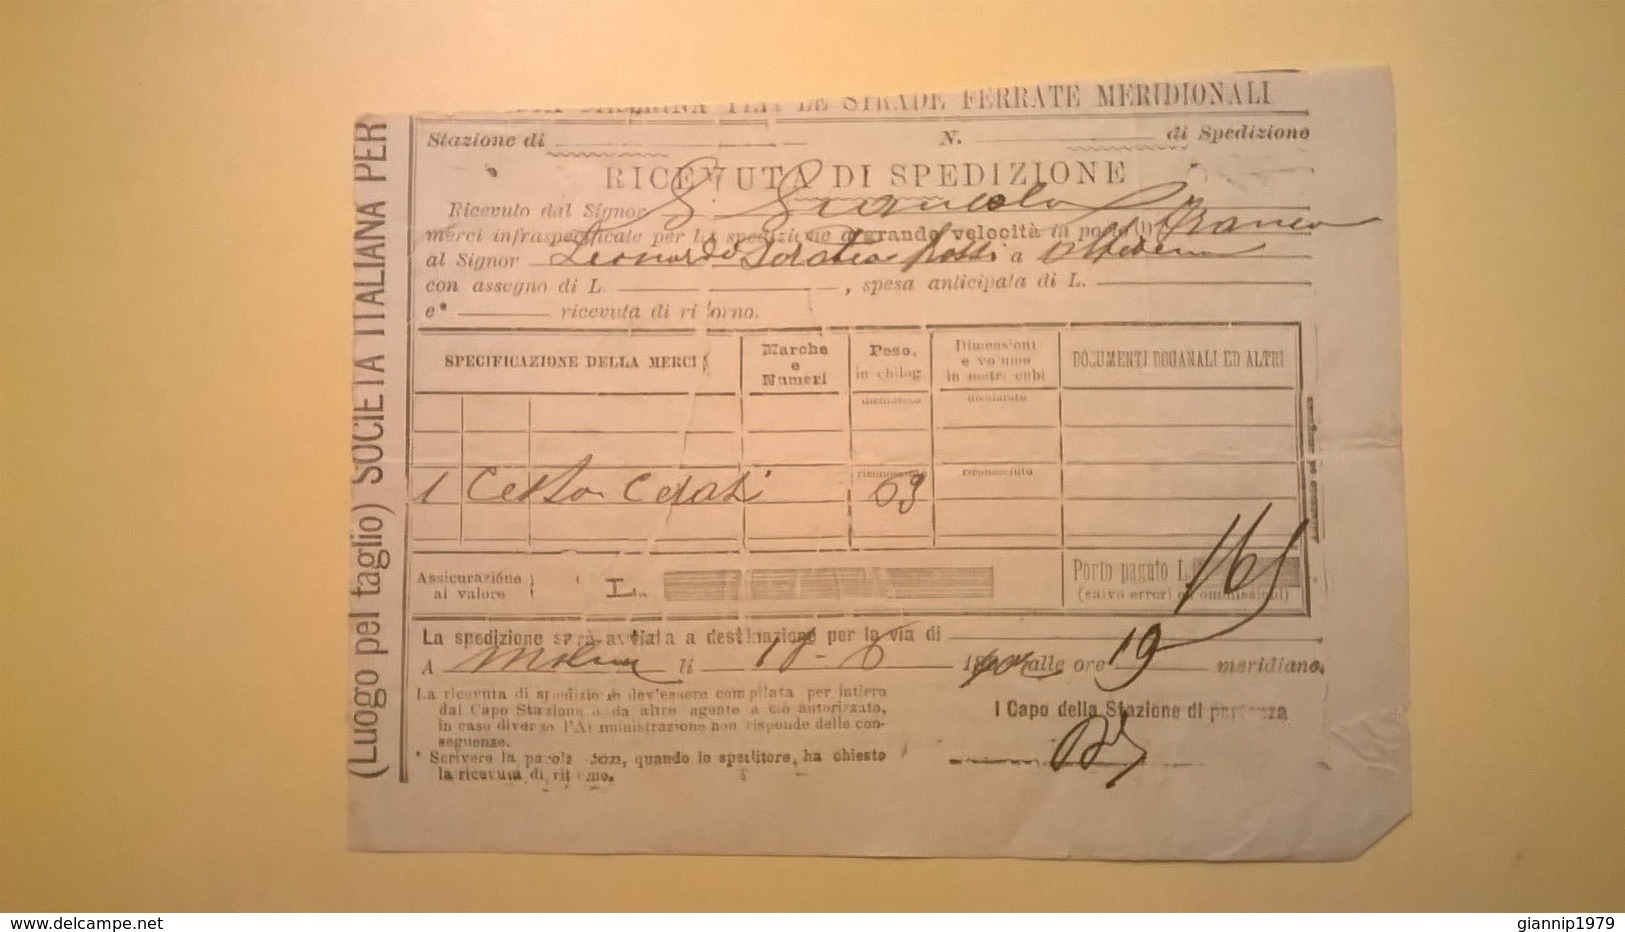 LE STRADE FERRATE MERIDIONALI
(Luogo pel taglio) SOCIETA ITALIANA PER
Stazione di N. di Spedizione
RICEVUTA DI SPEDIZIONE
Ricevuto dal Signor
merci infraspecificate per la spedizione a grande velocità in porto (1) Franco
al Signor Leonardo Rossi a
con assegno di L. , spesa anticipata di L.
e* ricevuta di ritorno.
SPECIFICAZIONE DELLA MERCI
Marche e Numeri
Peso. in chilog
Dimensioni e volume in metri cubi
DOCUMENTI DOGANALI ED ALTRI
dichiarato dichiarato
riconosciuto riconosciuto
1 Cesta 63
Assicurazione al valore L. Porto pagato L. 165
(salvo errori od ommissioni)
La spedizione sarà avviata a destinazione per la via di
A li 18-6 alle ore 19 meridiane.
La ricevuta di spedizione dev'essere compilata per intiero
dal Capo Stazione o da altro agente a ciò autorizzato,
in caso diverso l'Amministrazione non risponde delle con-
seguenze.
* Scrivere la parola con, quando lo speditore, ha chiesto
la ricevuta di ritorno.
I Capo della Stazione di partenza
© delcampe.net
giannip1979